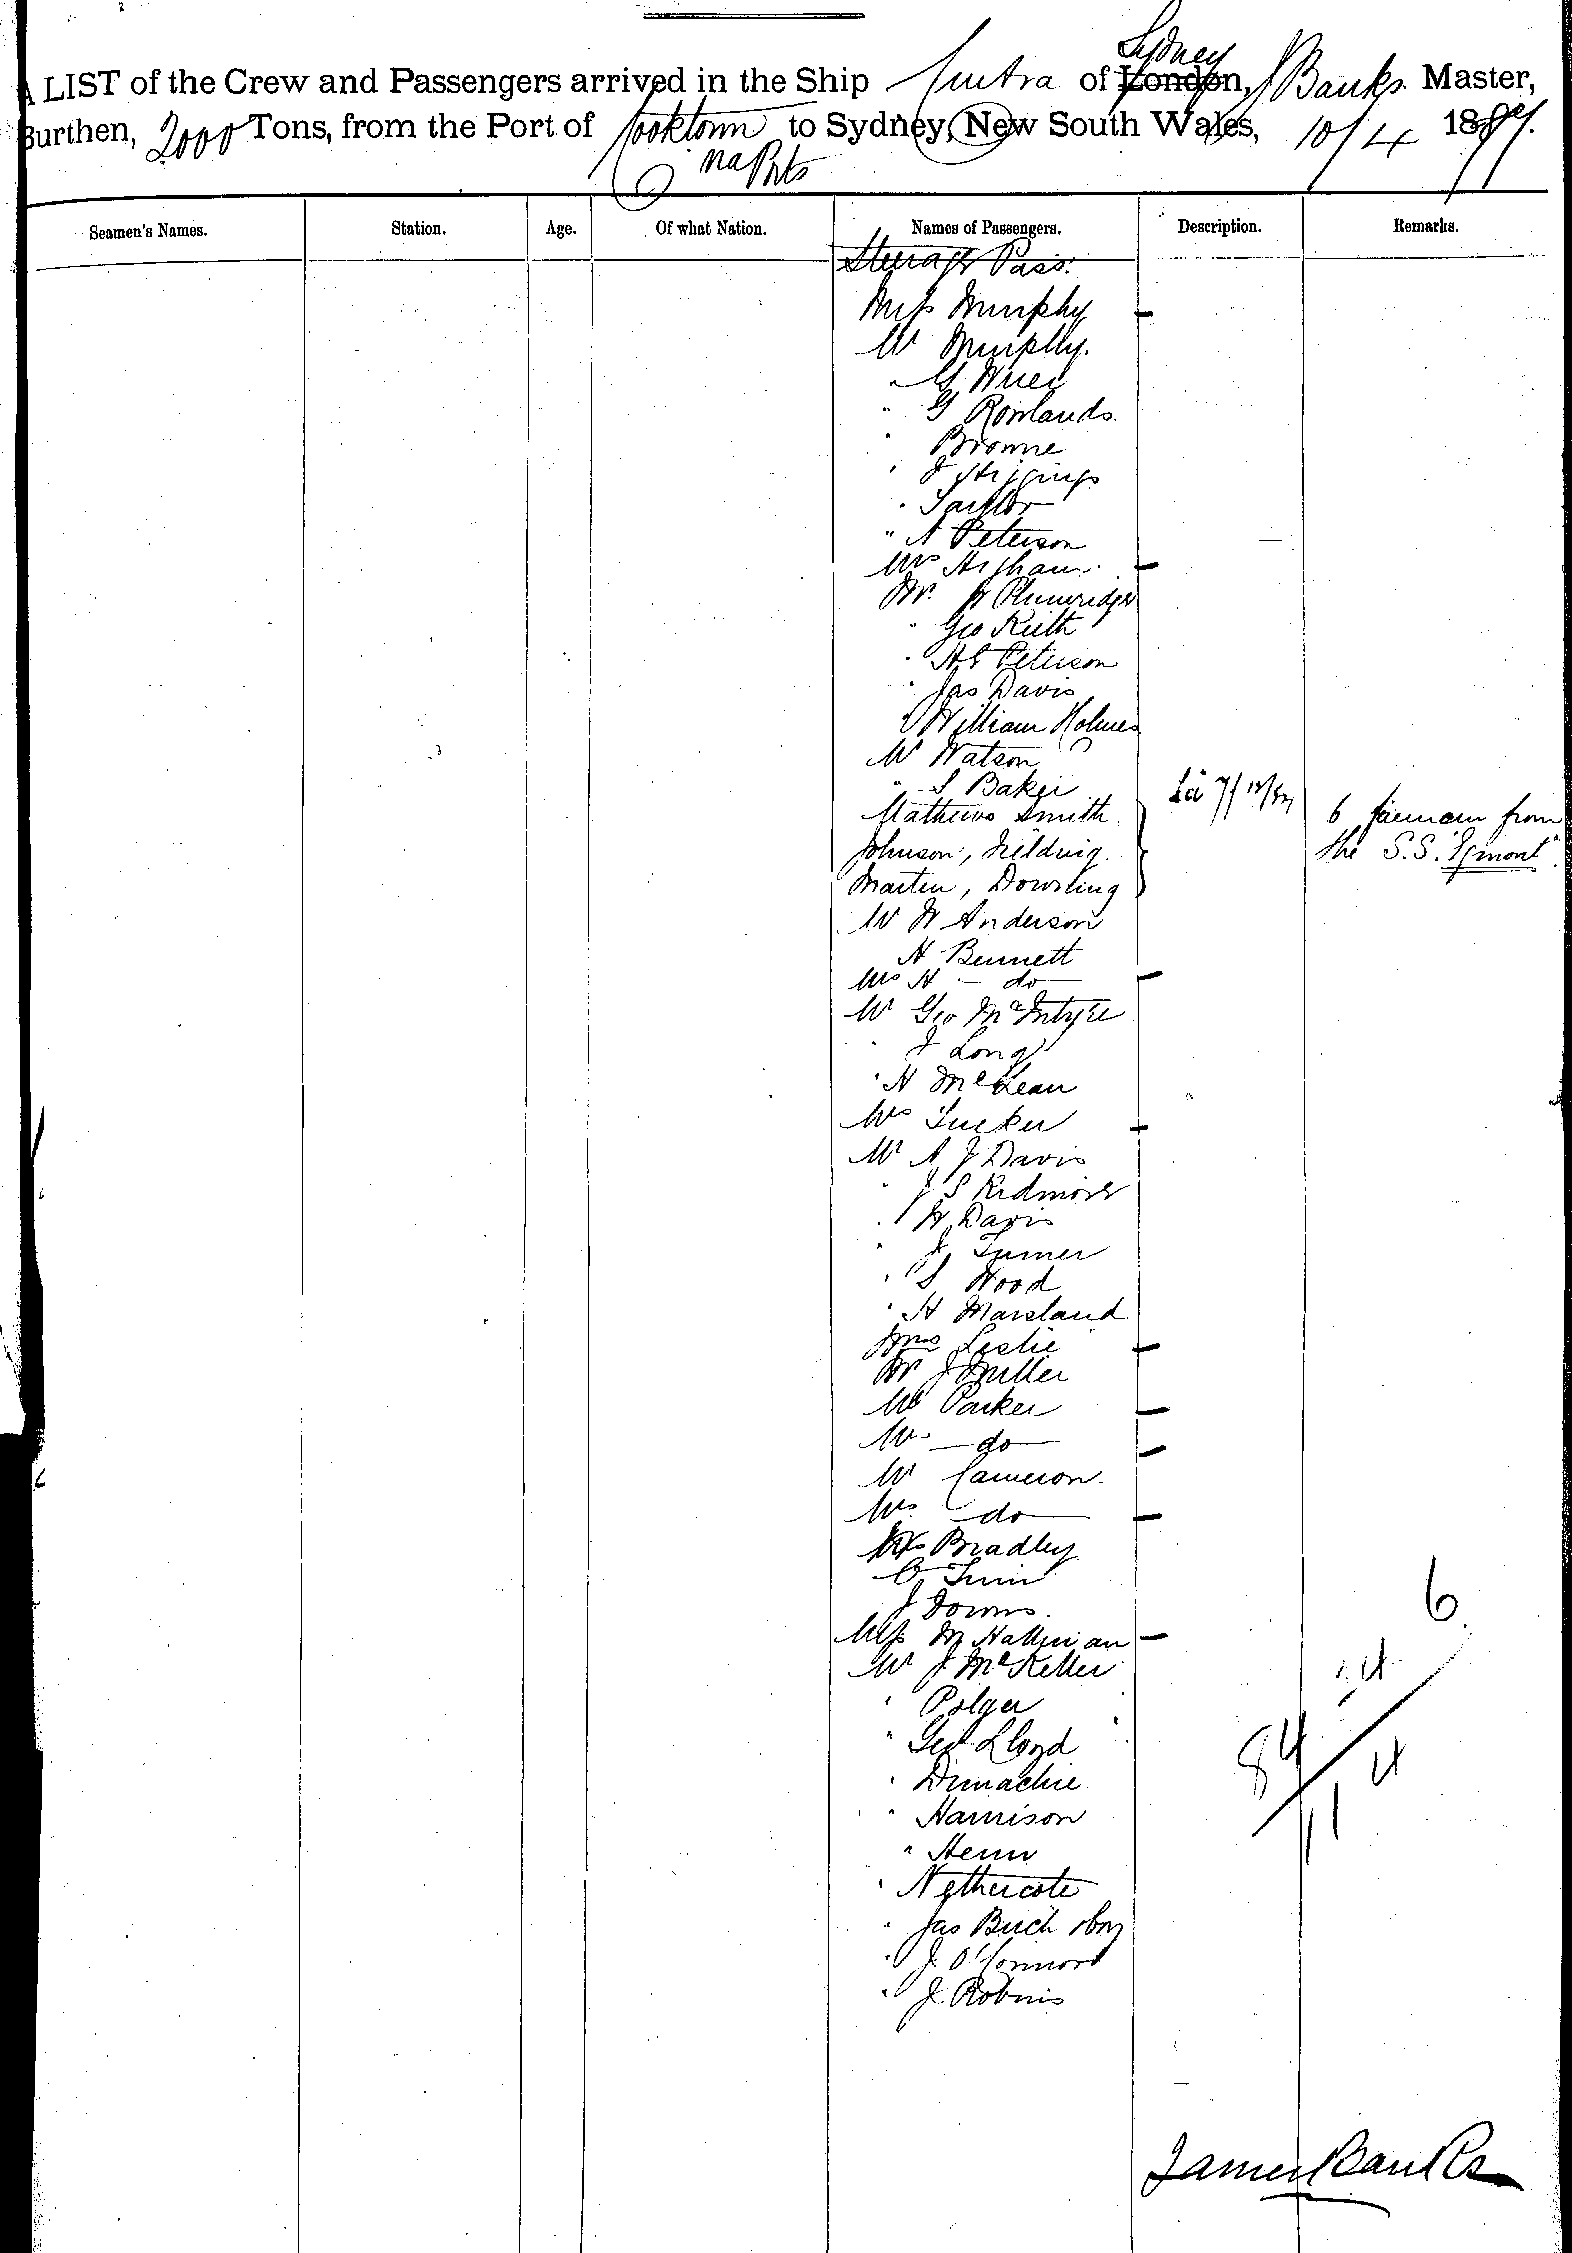 A LIST of the Crew and Passengers arrived in the Ship Cintra of London, Sydney J Banks Master,
Burthen, 2000 Tons, from the Port of Cooktown to Sydney, New South Wales, 10/4 1887.
via Ports
Seamen's Names. Station. Age. Of what Nation. Names of Passengers. Description. Remarks.
Steerage Pass.
Miss Murphy
Mr Murphy.
" G
" G Rowlands
" Browne
" J Higgins
" Taylor
" A Peterson
Mrs Higham
Mr. W Plumridge
" Geo Keith
" H C Peterson
" Jas Davis
" William Holmes
Mr Watson
" S Baker
Mathews Smith
Johnson, Fielding
Marten, Dowling
6 firemen from
the S.S. "Egmont".
Mr W Anderson
H Bennett
Mrs H — do —
Mr Geo McIntyre
" J Long
" H McLean
Mrs Tucker
Mr A J Davis
" J S Redmore
" W Davis
" J Turner
" S Wood
" H Marsland
Mrs Leslie
Mr J Miller
Mrs Parker
— do —
Mr Cameron
Mrs — do —
Bradley
J Downs.
Miss M Hallinan
Mr J McKeller
" Polger
" Geo Lloyd
" Harrison
" Henn
" Nethercote
" Jas Birch boy
" J. O'Connor
" J. Robins
6
14
84
11 4
James Banks